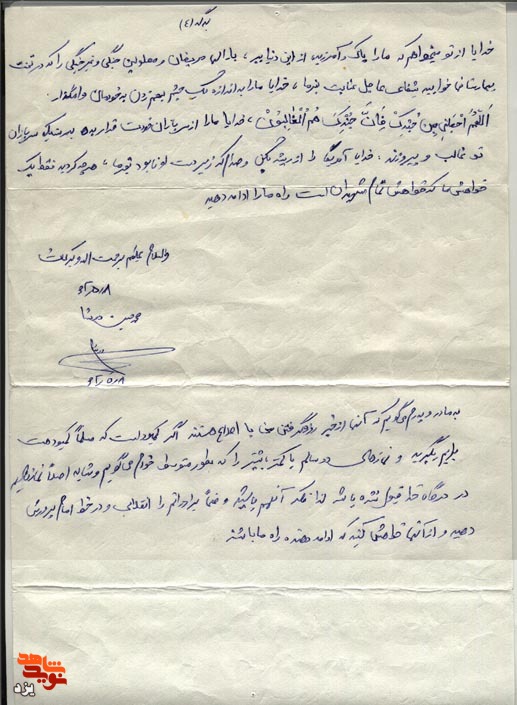 برگه (٤)
خدایا از تو میخواهم که ما را پاک و آمرزیده از این دنیا ببر، بارالها مریضان و معلولین جنگی و غیر جنگی را که در تخت
بیمارستانها خوابیده شفای عاجل عنایت بفرما، خدایا ما را به اندازه یک چشم بهم زدن به خودمان وامگذار
اَللّهُمَّ اجْعَلْنی مِنْ جُنْدِکَ فَاِنَّ جُنْدَکَ هُمُ الْغالِبُونْ، خدایا ما را از سربازان خودت قرار بده بدرستیکه سربازان
تو غالب و پیروزند، خدایا آمریکا را از ریشه بکن و صدام که زیر دست او نابود بفرما، هر چه کردید فقط یک
خواهش ما که خواهش تمام شهیدان است راه ما را ادامه دهید
والسلام علیکم و رحمت اله و برکاته
به مادر و پدرم می‌گویم که آنها از خیر روزه گرفتن با اطلاع هستند اگر کمبود است که مسلماً کمبود هست
برایم بگیرید و نمازهای دو سالم یا کمتر یا بیشتر را که بطور متوسط خودم می‌گویم و شاید اصلاً نمازهایم
در درگاه خدا قبول نشده باشد لذا بفکر آنهم باشید و ضمناً برادرانم را انقلابی و در خط امام پرورش
دهید و از آنها خواهش کنید که ادامه دهنده راه ما باشند
شاهد
نوید
یزد